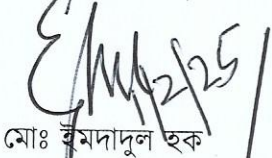 2/25
মোঃ ইমদাদুল হক